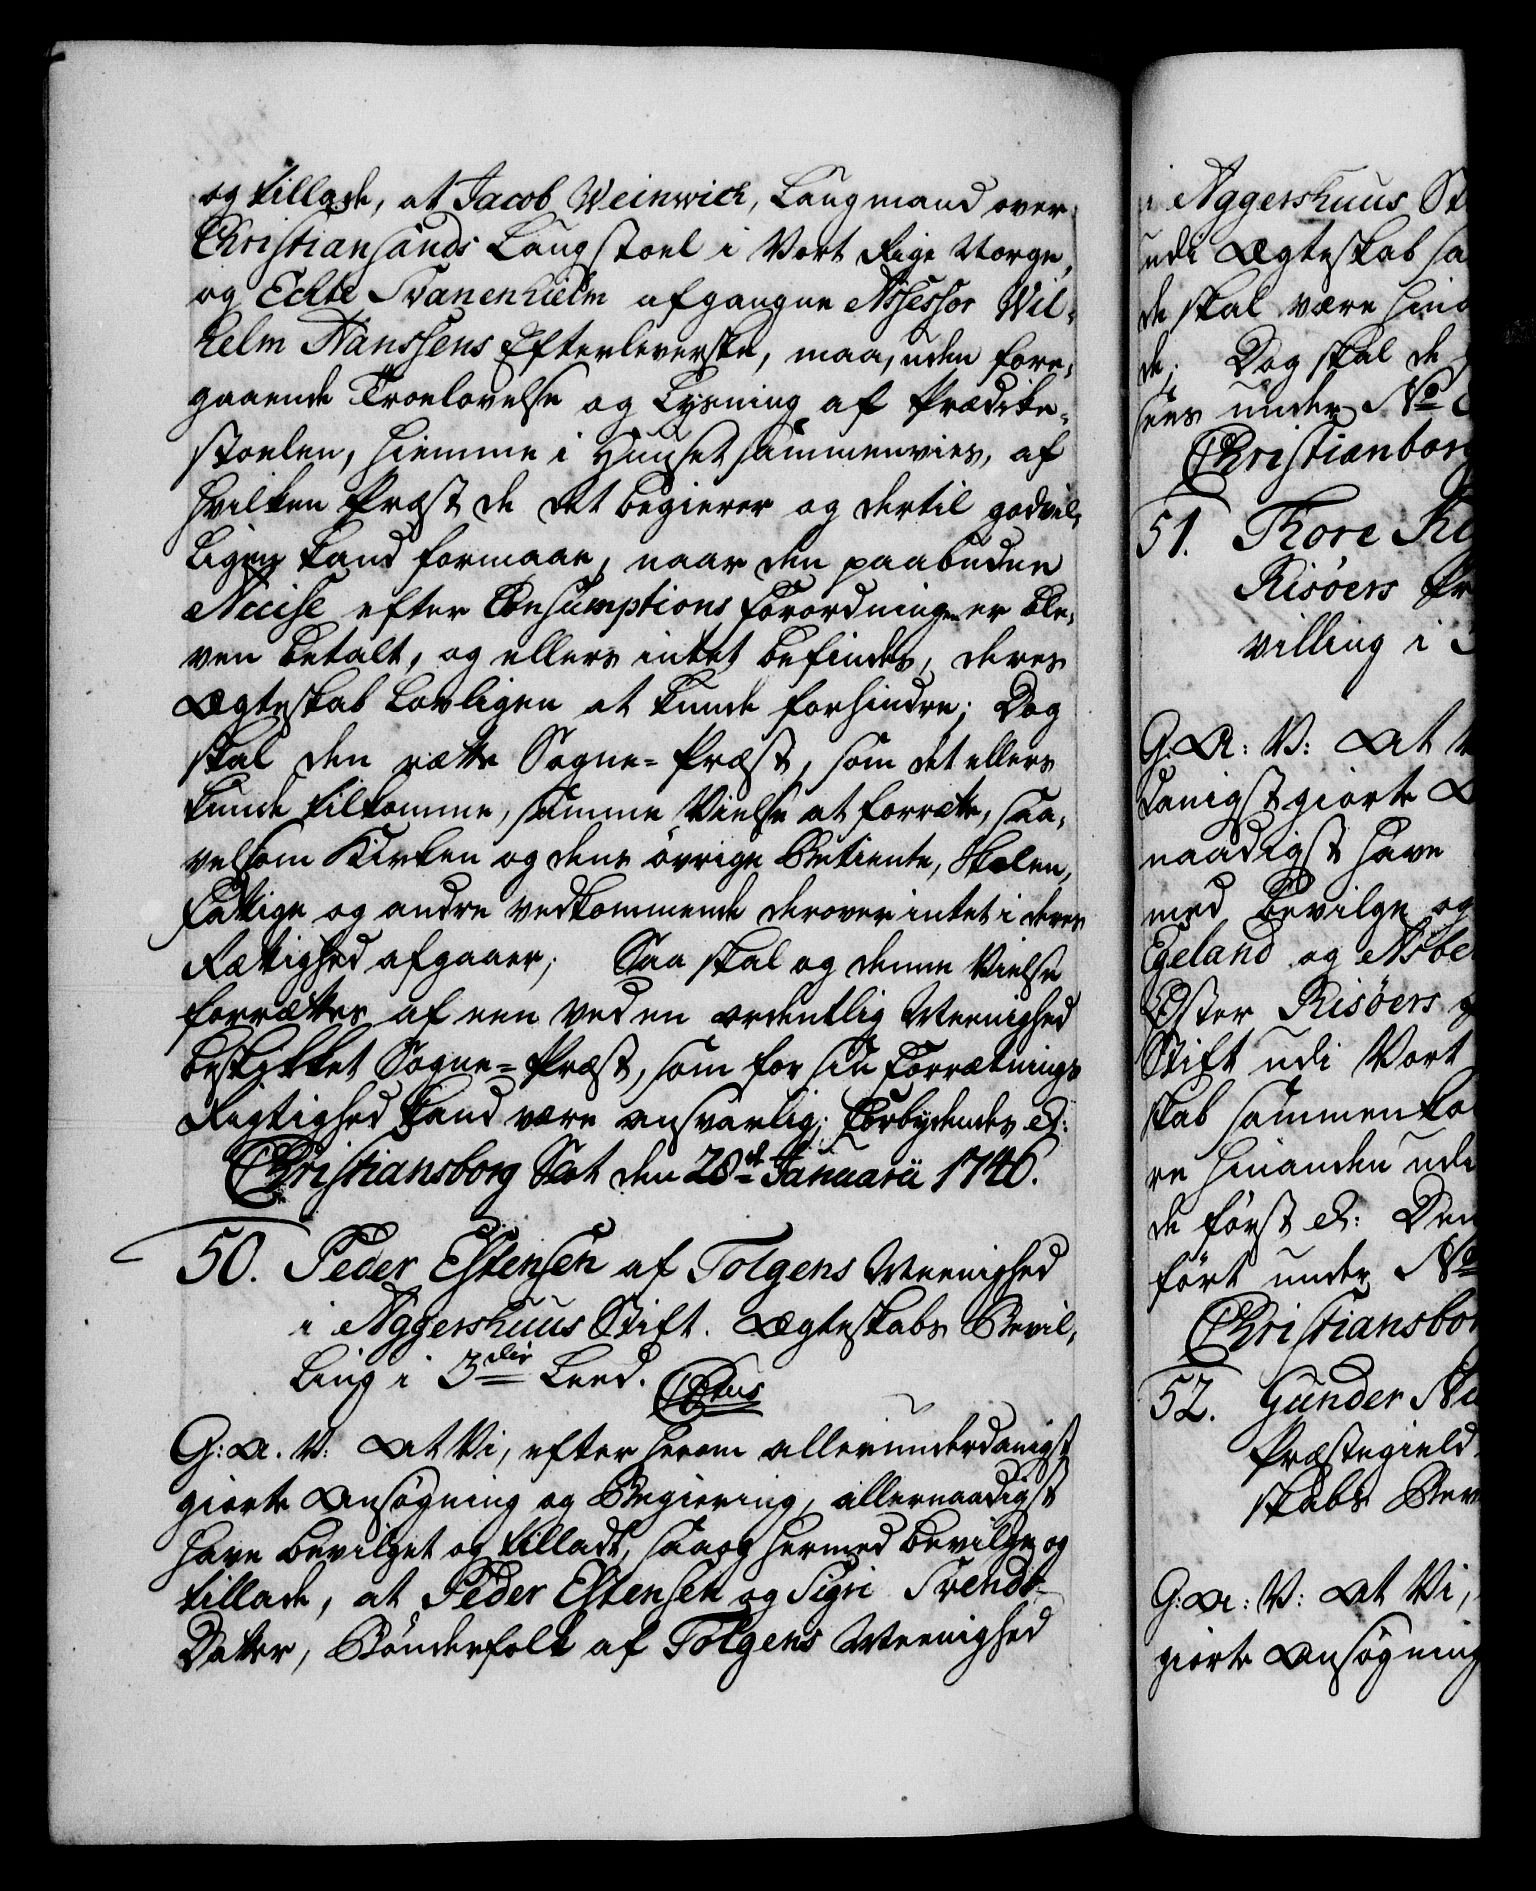 og tillade, at Jacob Weinwich, Laugmand over
Christiansands Laugstoel i Vort Rige Norge,
og Echte Svanenhielm afgangne Assessor Wil-
helm Hanssens Efterleverske, maa, uden fore-
gaaende Troelovelse og Lysning af Prædike-
stoelen, hiemme i Huuset sammenvies, af
hvilken Præst de det begierer og dertil godvil-
ligen kand formaae, naar den paabudne
Accise efter Consumptions Forordningen er ble-
ven betalt, og ellers intet befindes, deres
Ægteskab lovligen at kunde forhindre; Dog
skal den rette Sogne-Præst, som det ellers
kunde tilkomme, samme Vielse at forrette, saa-
velsom Kirken og dens øvrige Betiente, Skolen,
Fattige og andre vedkommende derover intet i deres
Rettighed afgaaer; Saa skal og denne Vielse
forrettes af een ved en ordentlig Meenighed
beskikket Sogne-Præst, som for sin Forretnings
Rigtighed kand være ansvarlig; Forbydendes &:
Christiansborg Slot den 28de Januarii 1746.
50. Peder Estensen af Tolgens Meenighed
i Aggershuus Stift. Ægteskabs Bevil-
ling i 3die Leed.
G: A. V: At Vi, efter herom allerunderdanigst
giorte Ansøgning og Begiering, allernaadigst
have bevilget og tilladt, saa og hermed bevilge og
tillade, at Peder Estensen og Sigri Svends-
Datter, Bønderfolk af Tolgens Meenighed
i Aggershuus St
udi Ægteskab sa
de skal være hin
de. Dog skal de
sees under No
Christianborg
51. Thore
Risøers Pr
villing i 3
G: A: V: At V
danigst giorte
naadigst have
med bevilge og
Egeland og Asbe
Øster Risøers
Stift udi Vort
skab sammenko
re hinanden udi
de først &: Den
ført under No
Christiansbor
52. Gunder
Præstegield
skabs Bev
G: A: V: At Vi,
giorte Ansøgning